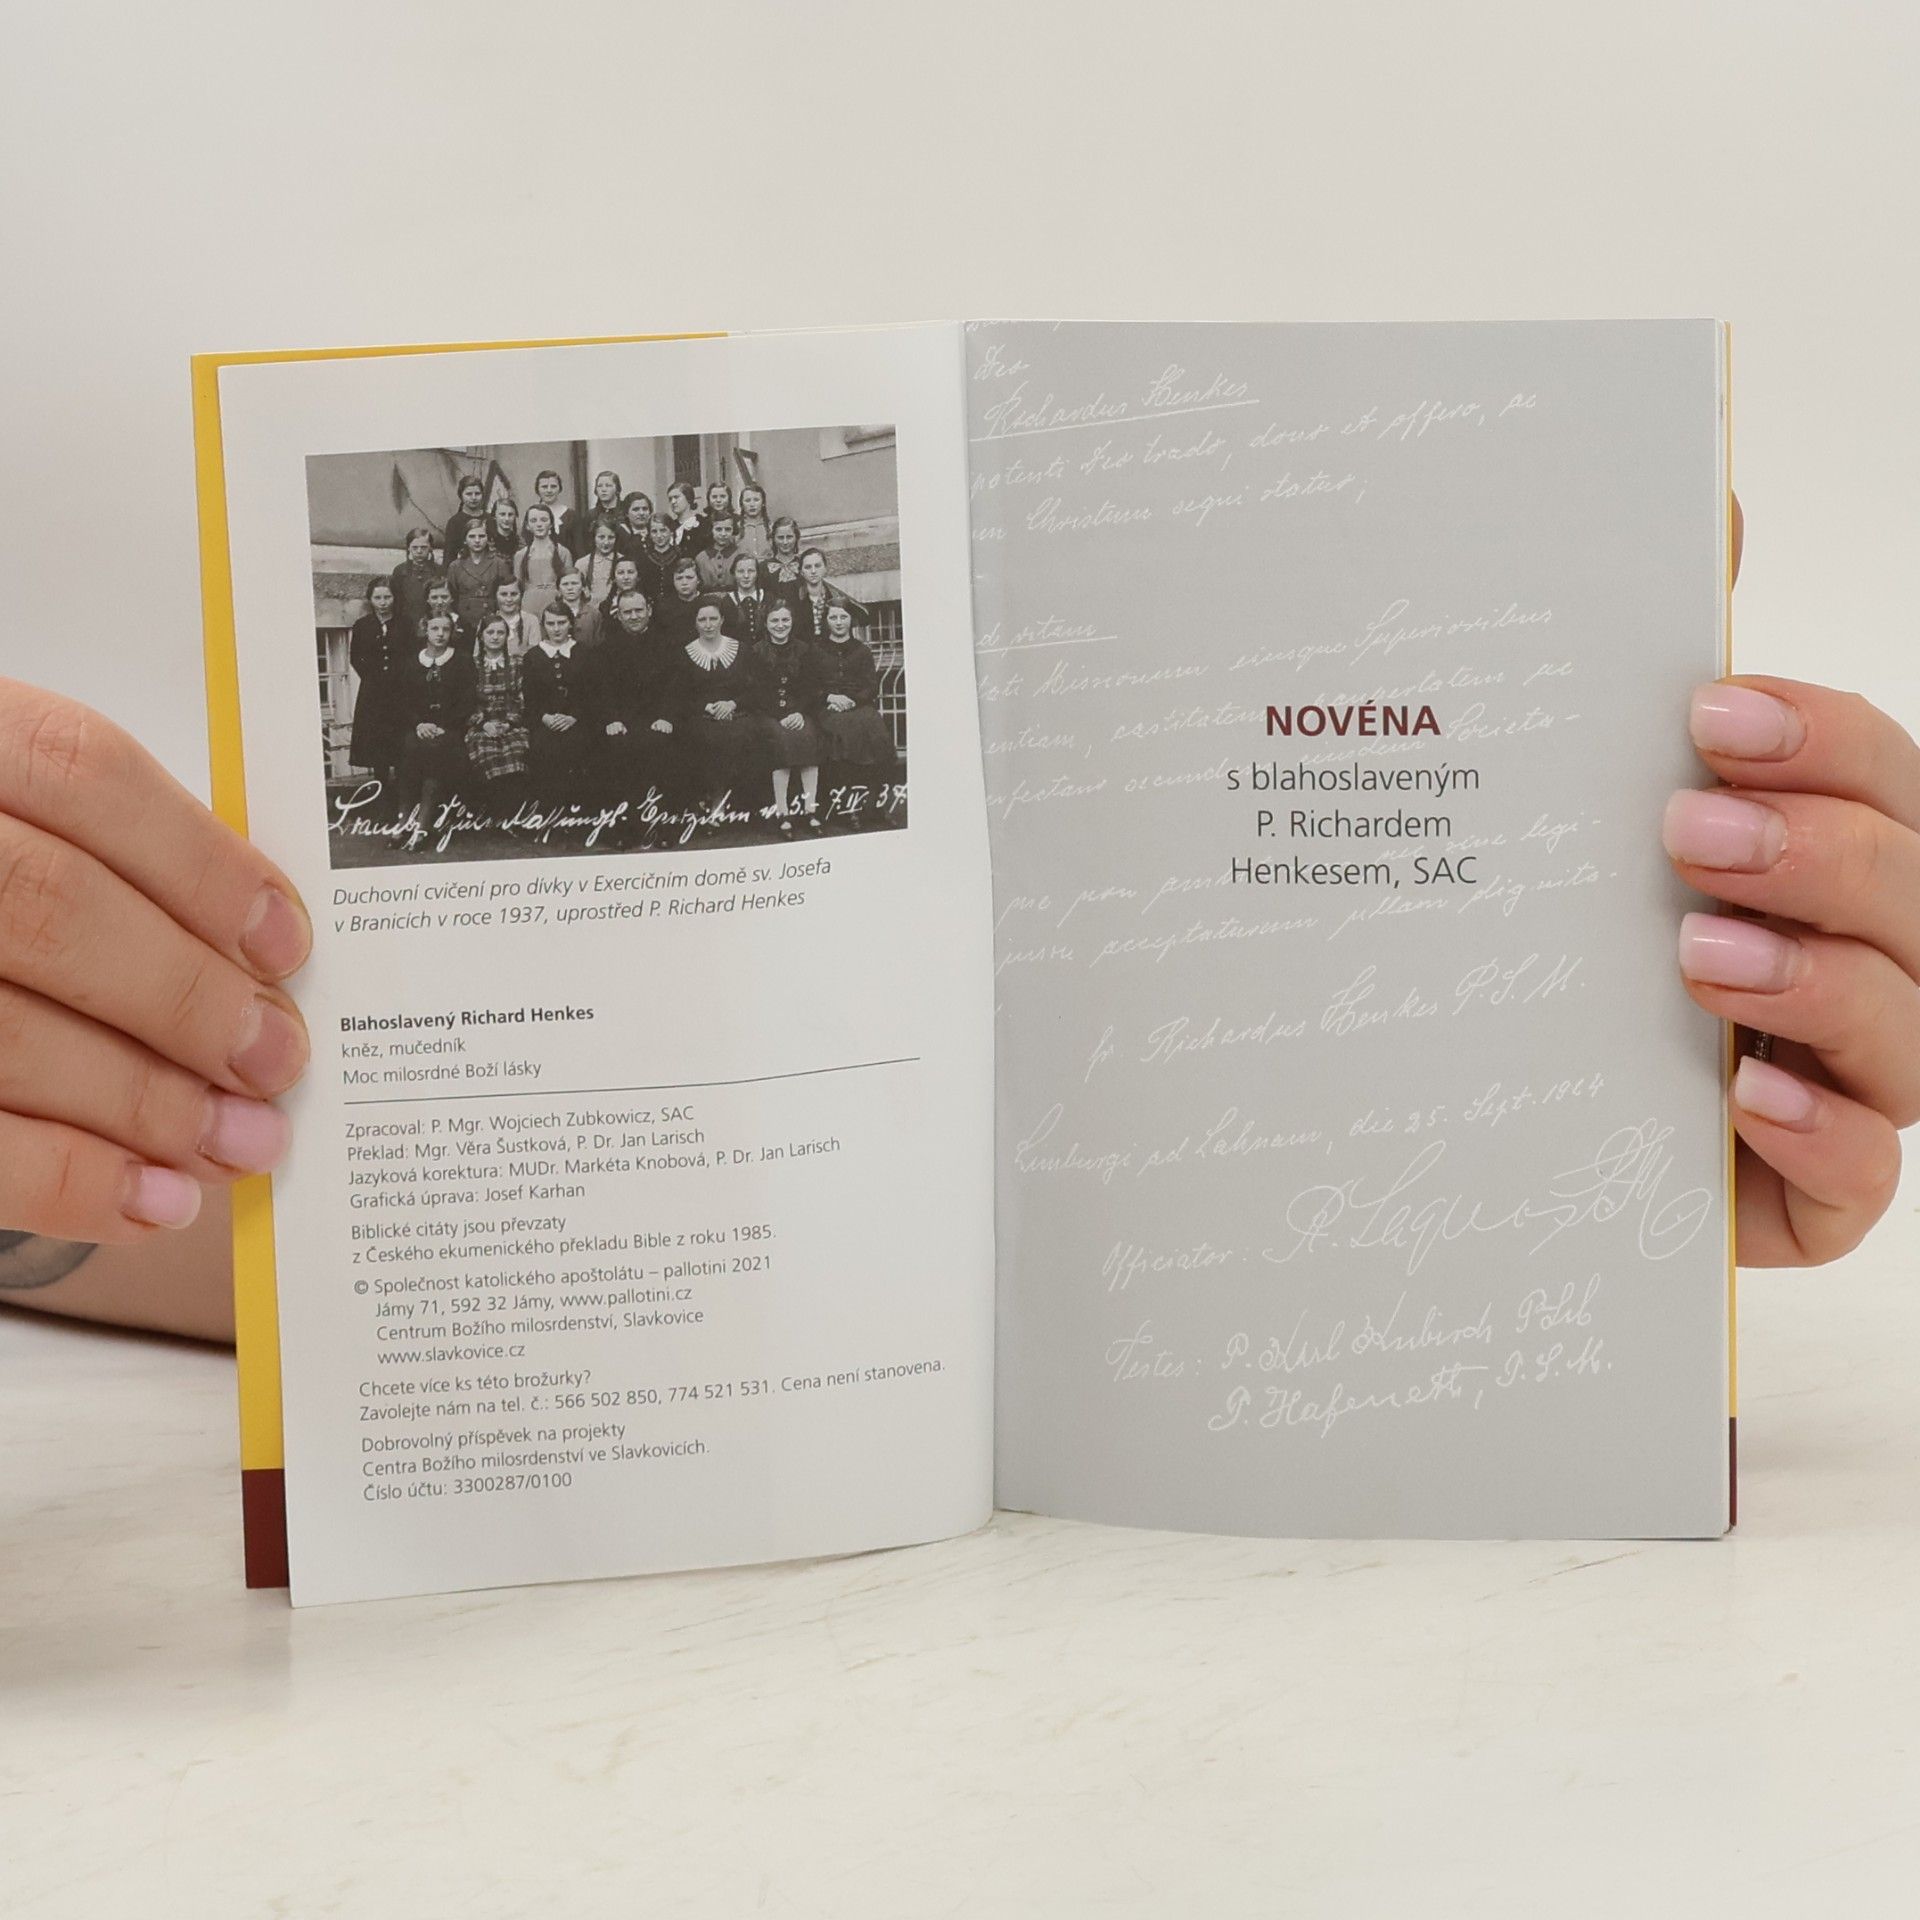 Branitz Schulentlassungs-Exerzitien v. 5.-7.IV.37.
Duchovní cvičení pro dívky v Exercičním domě sv. Josefa
v Branicích v roce 1937, uprostřed P. Richard Henkes
Blahoslavený Richard Henkes
kněz, mučedník
Moc milosrdné Boží lásky
Zpracoval: P. Mgr. Wojciech Zubkowicz, SAC
Překlad: Mgr. Věra Šustková, P. Dr. Jan Larisch
Jazyková korektura: MUDr. Markéta Knobová, P. Dr. Jan Larisch
Grafická úprava: Josef Karhan
Biblické citáty jsou převzaty
z Českého ekumenického překladu Bible z roku 1985.
© Společnost katolického apoštolátu – pallotini 2021
Jámy 71, 592 32 Jámy, www.pallotini.cz
Centrum Božího milosrdenství, Slavkovice
www.slavkovice.cz
Chcete více ks této brožurky?
Zavolejte nám na tel. č.: 566 502 850, 774 521 531. Cena není stanovena.
Dobrovolný příspěvek na projekty
Centra Božího milosrdenství ve Slavkovicích.
Číslo účtu: 3300287/0100
Deo
Richardus Henkes
potenti Deo trado, dono et offero, ac
Christum sequi statuo;
d vitam
Missionum eiusque Superioribus
entiam, castitatem, paupertatem ac
secundum eiusdem Societa-
NOVÉNA
s blahoslaveným
P. Richardem
Henkesem, SAC
me non nec sine legi-
acceptaturum ullam dignita-
fr. Richardus Henkes P.S.M.
Limburgi ad Lahnam, die 25. Sept. 1924
Officiator:
Testes: P. Karl Kubisch
P. P.S.M.